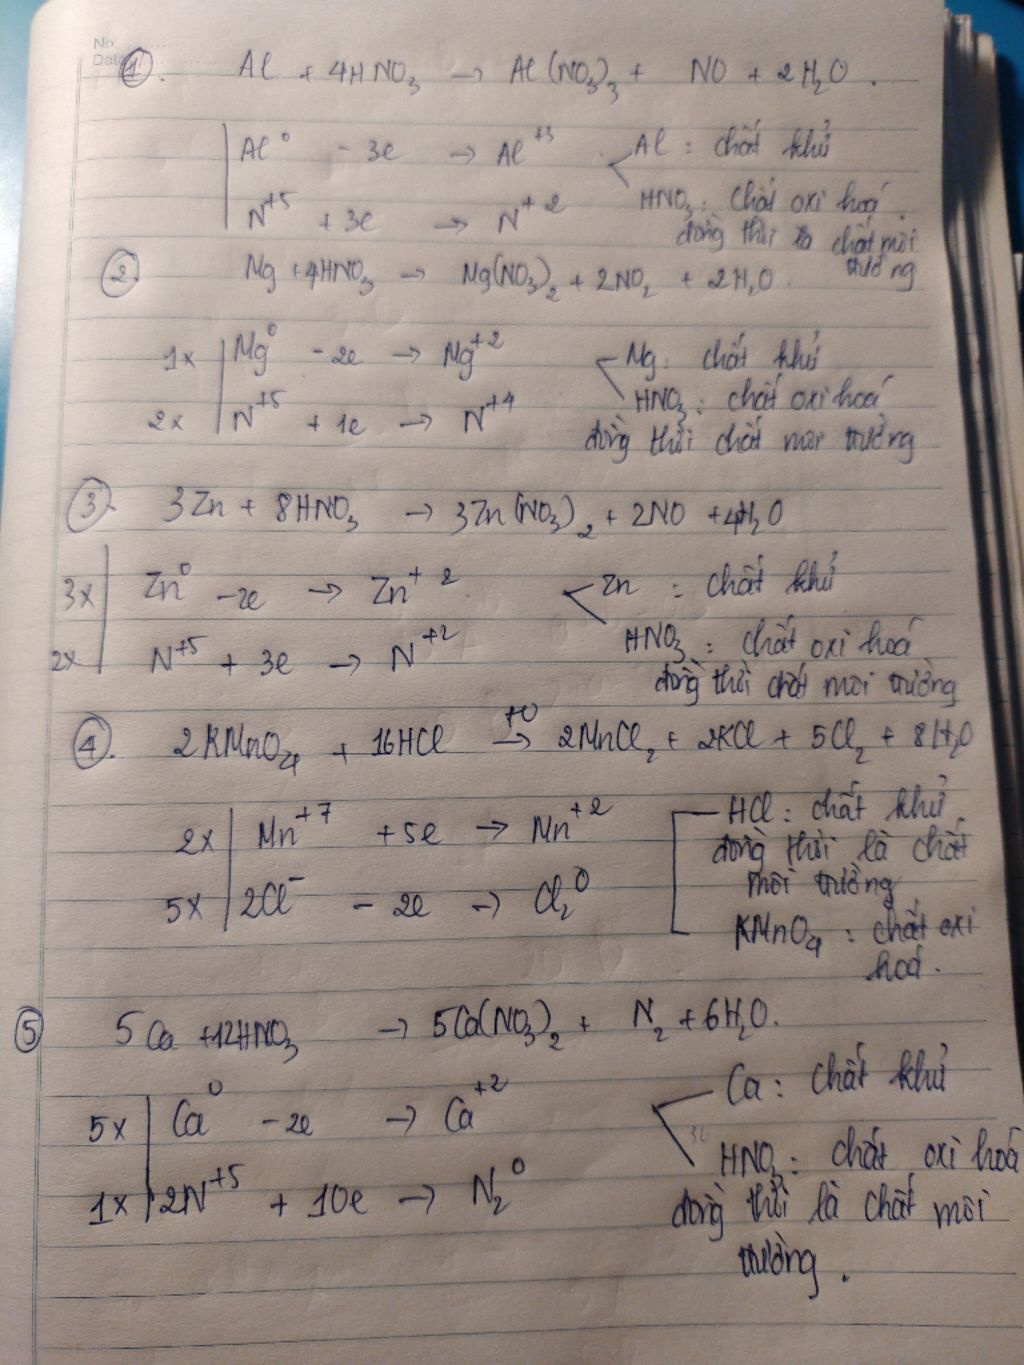 No.
Date
①. Al + 4HNO₃ → Al(NO₃)₃ + NO + 2H₂O.
Al⁰ - 3e → Al⁺³ Al : chất khử
N⁺⁵ + 3e → N⁺² HNO₃ : chất oxi hoá.
đồng thời là chất môi
trường
② Mg + 4HNO₃ → Mg(NO₃)₂ + 2NO₂ + 2H₂O.
1x Mg⁰ - 2e → Mg⁺² Mg : chất khử
2x N⁺⁵ + 1e → N⁺⁴ HNO₃ : chất oxi hoá
đồng thời chất môi trường
③. 3Zn + 8HNO₃ → 3Zn(NO₃)₂ + 2NO + 4H₂O
3x Zn⁰ - 2e → Zn⁺² Zn : chất khử
2x N⁺⁵ + 3e → N⁺² HNO₃ : chất oxi hoá
đồng thời chất môi trường
④. 2KMnO₄ + 16HCl → 2MnCl₂ + 2KCl + 5Cl₂ + 8H₂O
2x Mn⁺⁷ + 5e → Mn⁺² HCl : chất khử
đồng thời là chất
môi trường
5x 2Cl⁻ - 2e → Cl₂⁰
KMnO₄ : chất oxi
hoá.
⑤ 5Ca + 12HNO₃ → 5Ca(NO₃)₂ + N₂ + 6H₂O.
5x Ca⁰ - 2e → Ca⁺² Ca : chất khử
1x 2N⁺⁵ + 10e → N₂⁰ HNO₃ : chất oxi hoá
đồng thời là chất môi
trường.